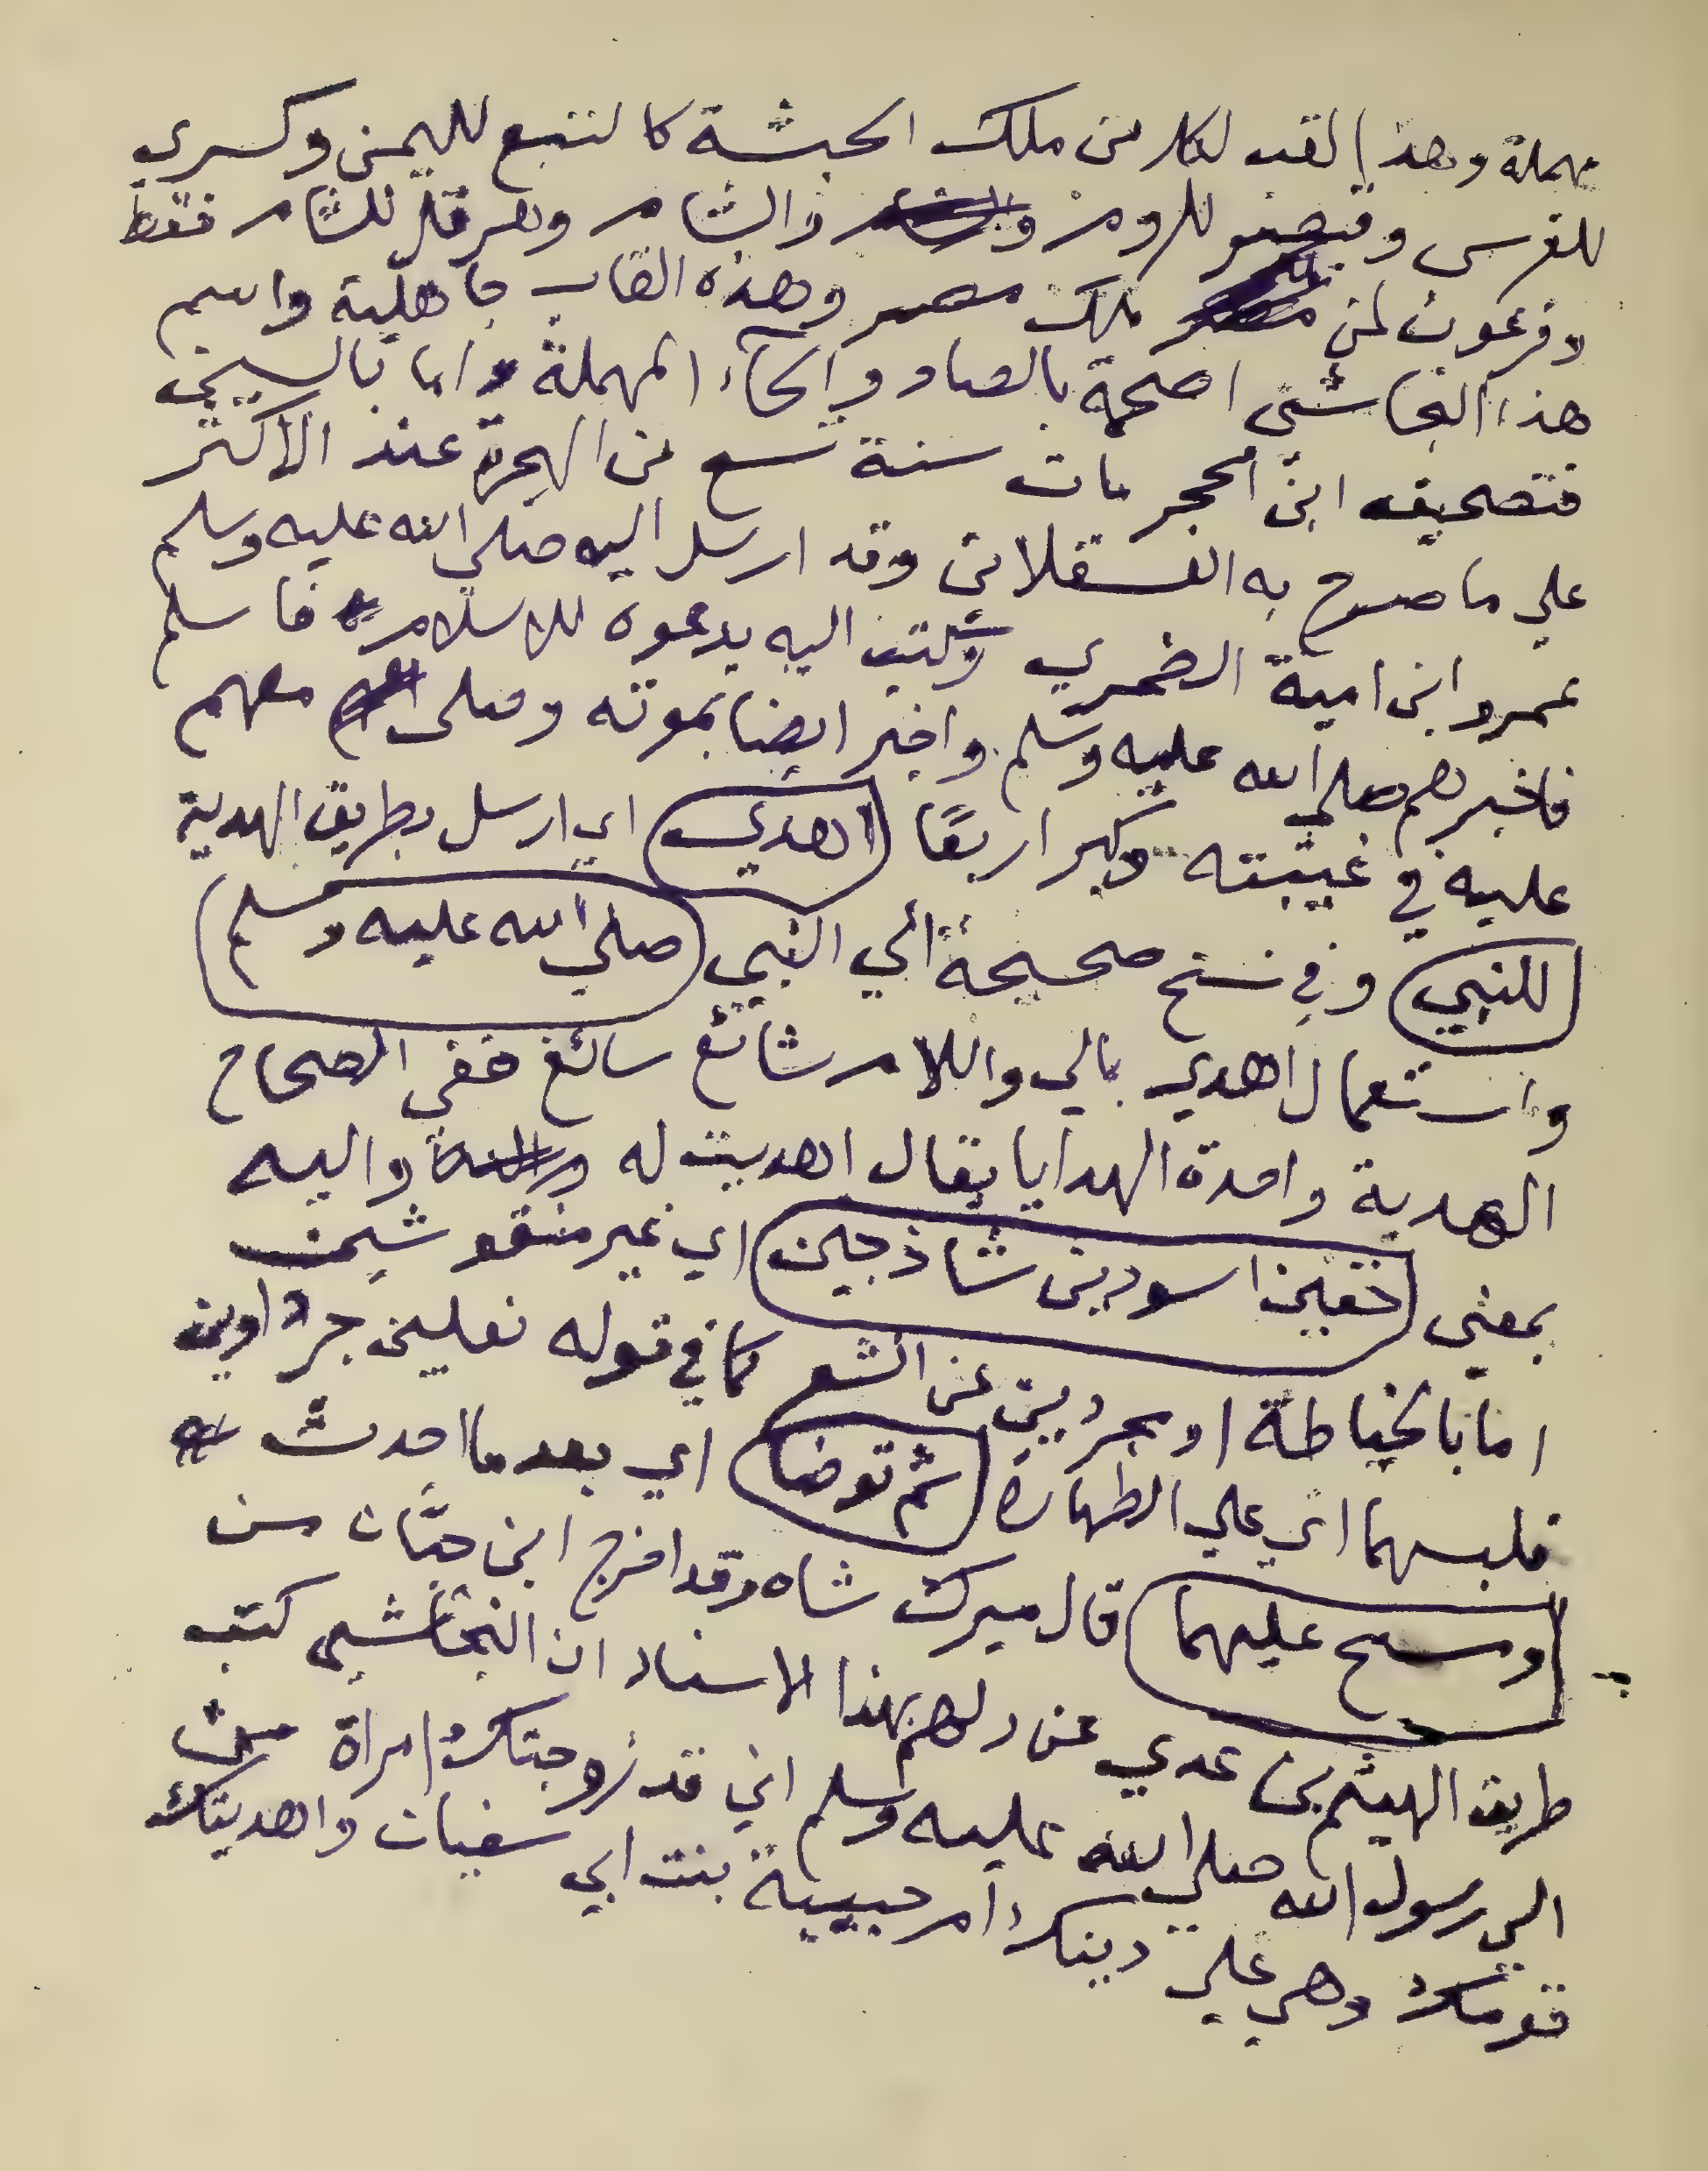 مهملة وهذا لقب لكل من ملك الحبشة كالتبع لليمن وكسري
للفرس وقيصر للروم والشام وهرقل للشام فقط
وفرعون لمن ملك مصر وهذه القاب جاهلية واسم
هذا النجاشي اصحمة بالصاد والحآء المهملة واما بالسين
فتصحيف ابن الحجر مات سنة تسع من الهجرة عند الاكثر
علي ما صرح به العسقلاني وقد ارسل اليه صلي الله عليه وسلم
عمرو ابن امية الضمري وكتب اليه يدعوه للاسلام فاسلم
فاخبرهم صلي الله عليه وسلم واخبر ايضا بموته وصلى معهم
عليه في غيبته وكبر اربعًا اهدي اي ارسل بطريق الهدية
للنبي وفي نسخ صحيحة الي النبي صلي الله عليه وسلم
واستعمال اهدي بالي واللام شائع سائغ ففي الصحاح
الهدية واحدة الهدايا يقال اهديت له واليه
بمعني خفين اسودين شاذجين اي غير منقوشين
اما بالخياطة او مجردين عن الشعر كما في قوله نعلين جرداوين
فلبسهما اي علي الطهارة ثم توضا اي بعد ما احدث
ومسح عليهما قال ميرك شاه وقد اخرج ابن حبّان من
طريق الهيثم بن عدي عن دلهم بهذا الاسناد ان النجاشي كتب
الي رسول الله صلي الله عليه وسلم اني قد زوجتك امراة من
قومك وهي علي دينك ام حبيبة بنت ابي سفيان واهديتك